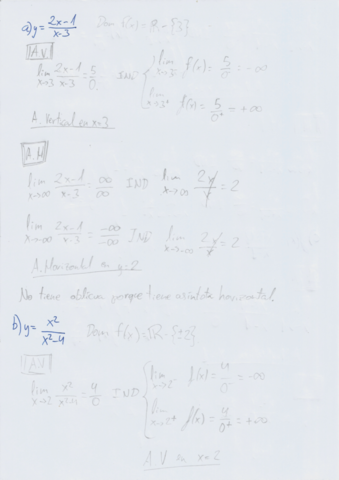 a) y = 2x-1 / x-3   Dom f(x) = R - {3}
A.V
lim x→3 2x-1 / x-3 = 5/0   IND   lim x→3⁻ f(x) = 5/0⁻ = -∞
lim x→3⁺ f(x) = 5/0⁺ = +∞
A. Vertical en x=3
A.H
lim x→∞ 2x-1 / x-3 = ∞/∞   IND   lim x→∞ 2x/x = 2
lim x→-∞ 2x-1 / x-3 = -∞/-∞   IND   lim x→-∞ 2x/x = 2
A. Horizontal en y=2
No tiene oblicua porque tiene asíntota horizontal.
b) y = x² / x²-4   Dom f(x) = R - {±2}
A.V
lim x→2 x² / x²-4 = 4/0   IND   lim x→2⁻ f(x) = 4/0⁻ = -∞
lim x→2⁺ f(x) = 4/0⁺ = +∞
A.V en x=2